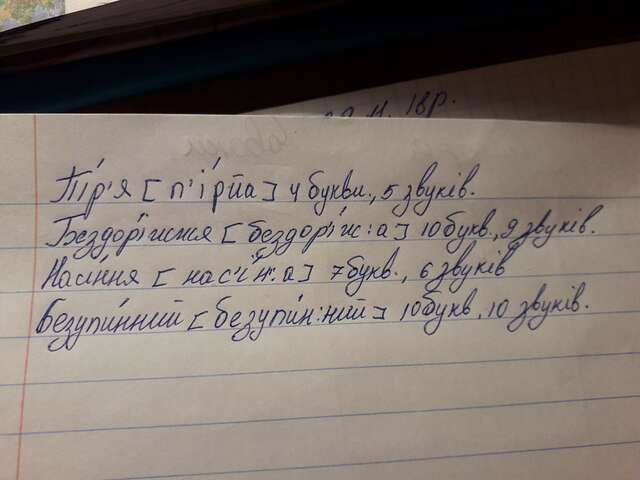 11. Івр.
Пі́р'я [п'і́рйа] 4 букви., 5 звуків.
Бездорі́жжя [бездор'і́ж:а] 10 букв., 9 звуків.
Насі́ння [нас'і́н':а] 7 букв., 6 звуків
Безупи́нний [безупи́н:ний] 10 букв, 10 звуків.